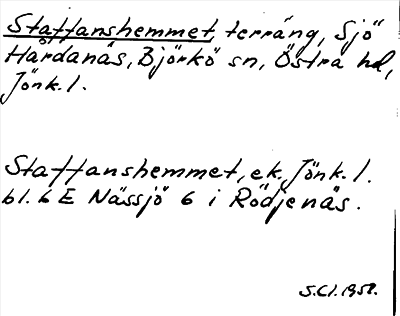 Staffanshemmet, terräng, Sjö
Hårdanäs, Björkö sn, Östra hd,
Jönk. l.
Staffanshemmet, ek. Jönk. l.
bl. 6 E Nässjö 6 i Rödjenäs.